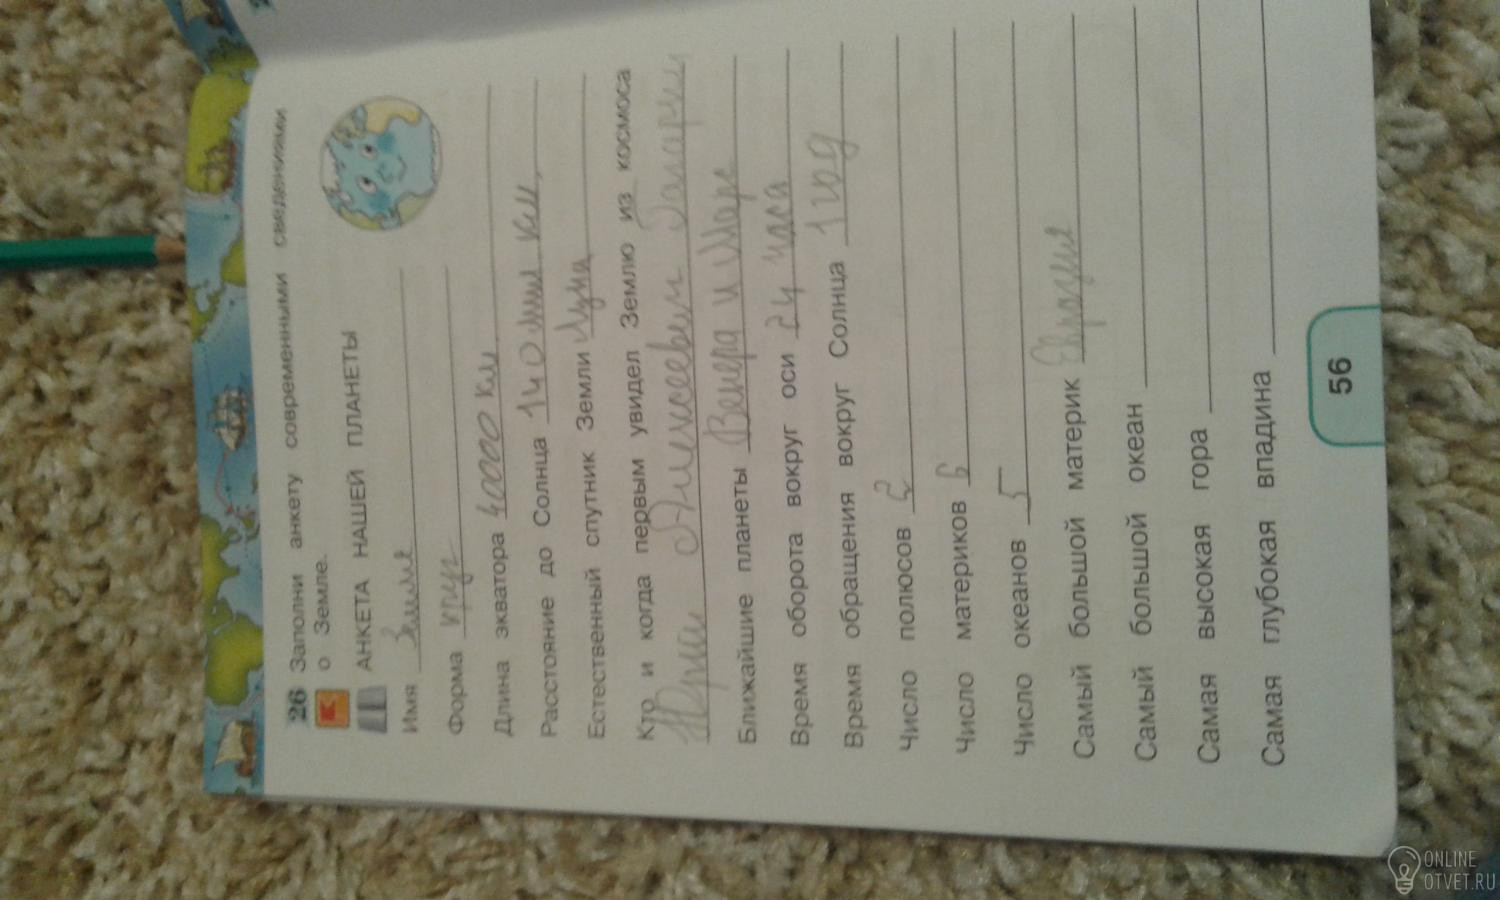 26 Заполни анкету современными сведениями
о Земле.
АНКЕТА НАШЕЙ ПЛАНЕТЫ
Имя Земля
Форма круг
Длина экватора 40000 км
Расстояние до Солнца 140 млн км,
Естественный спутник Земли Луна
Кто и когда первым увидел Землю из космоса
Юрий Алексеевич Гагарин
Ближайшие планеты Венера и Марс
Время оборота вокруг оси 24 часа
Время обращения вокруг Солнца 1 год
Число полюсов 2
Число материков 6
Число океанов 5
Самый большой материк Евразия
Самый большой океан
Самая высокая гора
Самая глубокая впадина
56
ONLINE
OTVET.RU